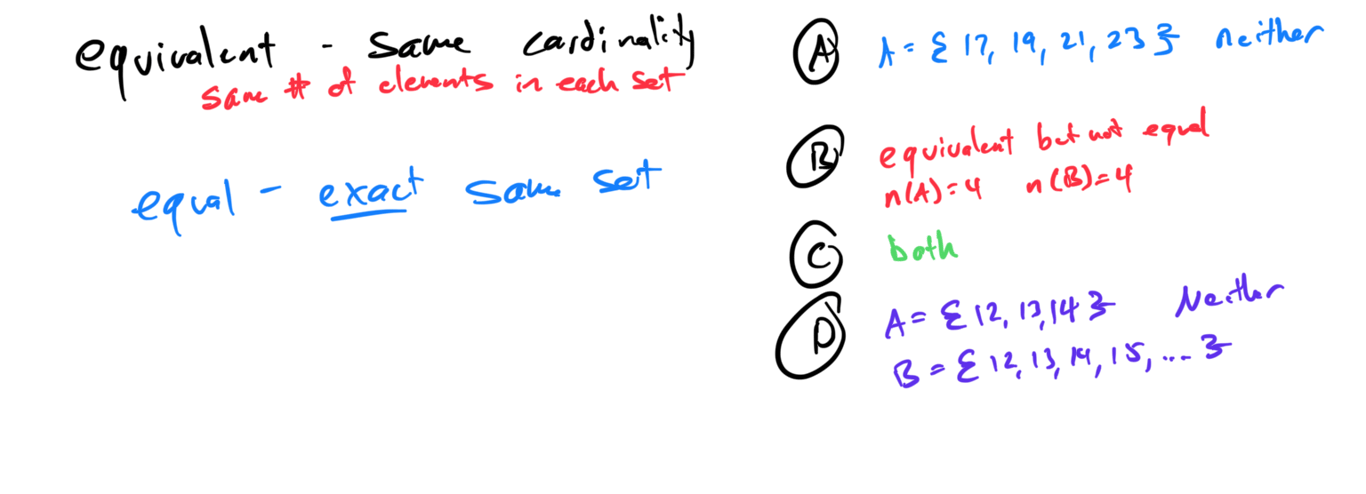 equivalent - same cardinality
same # of elements in each set
equal - exact same set
A A = { 17, 19, 21, 23 } neither
B equivalent but not equal
n(A)=4 n(B)=4
C both
D A = { 12, 13, 14 } Neither
B = { 12, 13, 14, 15, ... }